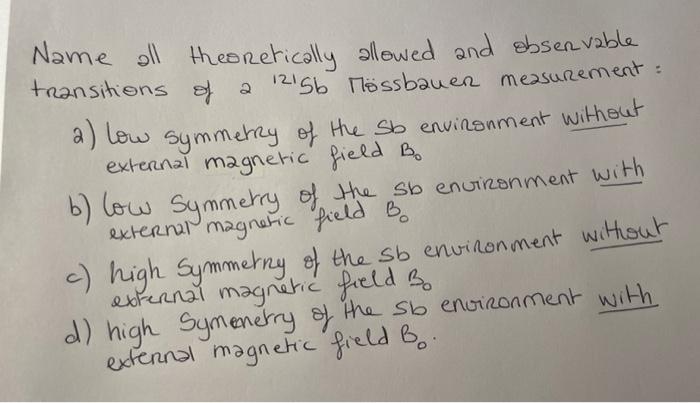 Name all theoretically allowed and observable
transitions of a ¹²¹Sb Mössbauer measurement :
a) low symmetry of the Sb environment without
external magnetic field B₀
b) low symmetry of the Sb environment with
external magnetic field B₀
c) high symmetry of the Sb environment without
external magnetic field B₀
d) high Symemetry of the Sb environment with
external magnetic field B₀.